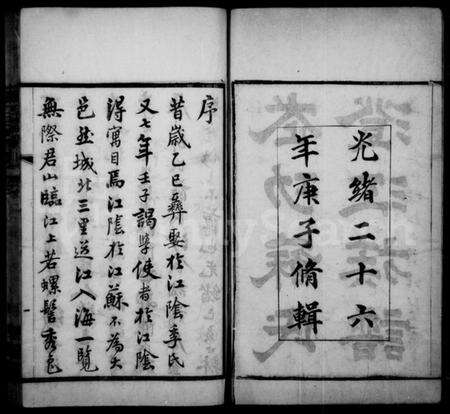 光緒二十六
年庚子脩輯
序
昔歲乙巳彝娶於江陰季氏
又七年壬子謁學使者於江陰
得寓目焉江陰於江蘇不為大
邑並城北三里送江入海一覽
無際君山臨江上若螺髻秀色